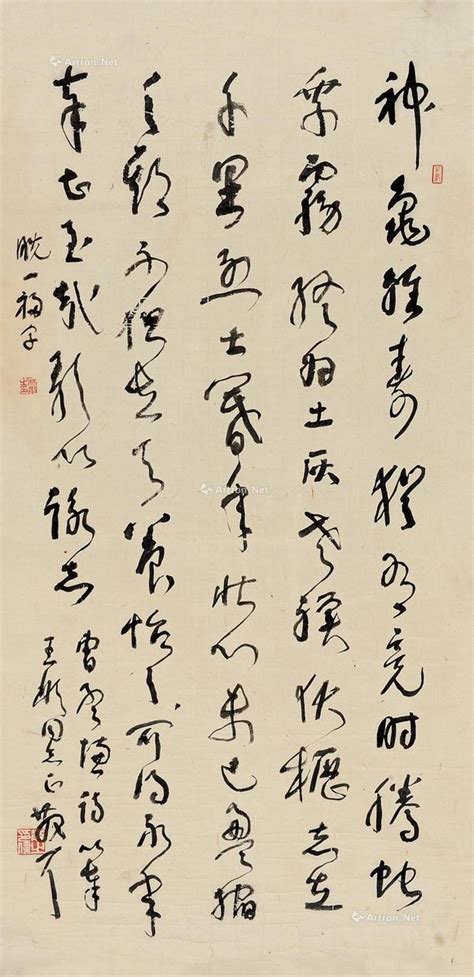 神龜雖壽猶有竟時騰蛇
乘霧終為土灰老驥伏櫪志在
千里烈士暮年壯心未已盈縮
之期不但在天養怡之可得永年
幸甚至哉歌以詠志
曹孟德詩以奉
王同志正 散耳
脫一福字
Artron.Net
Artron.Net
Artron.Net